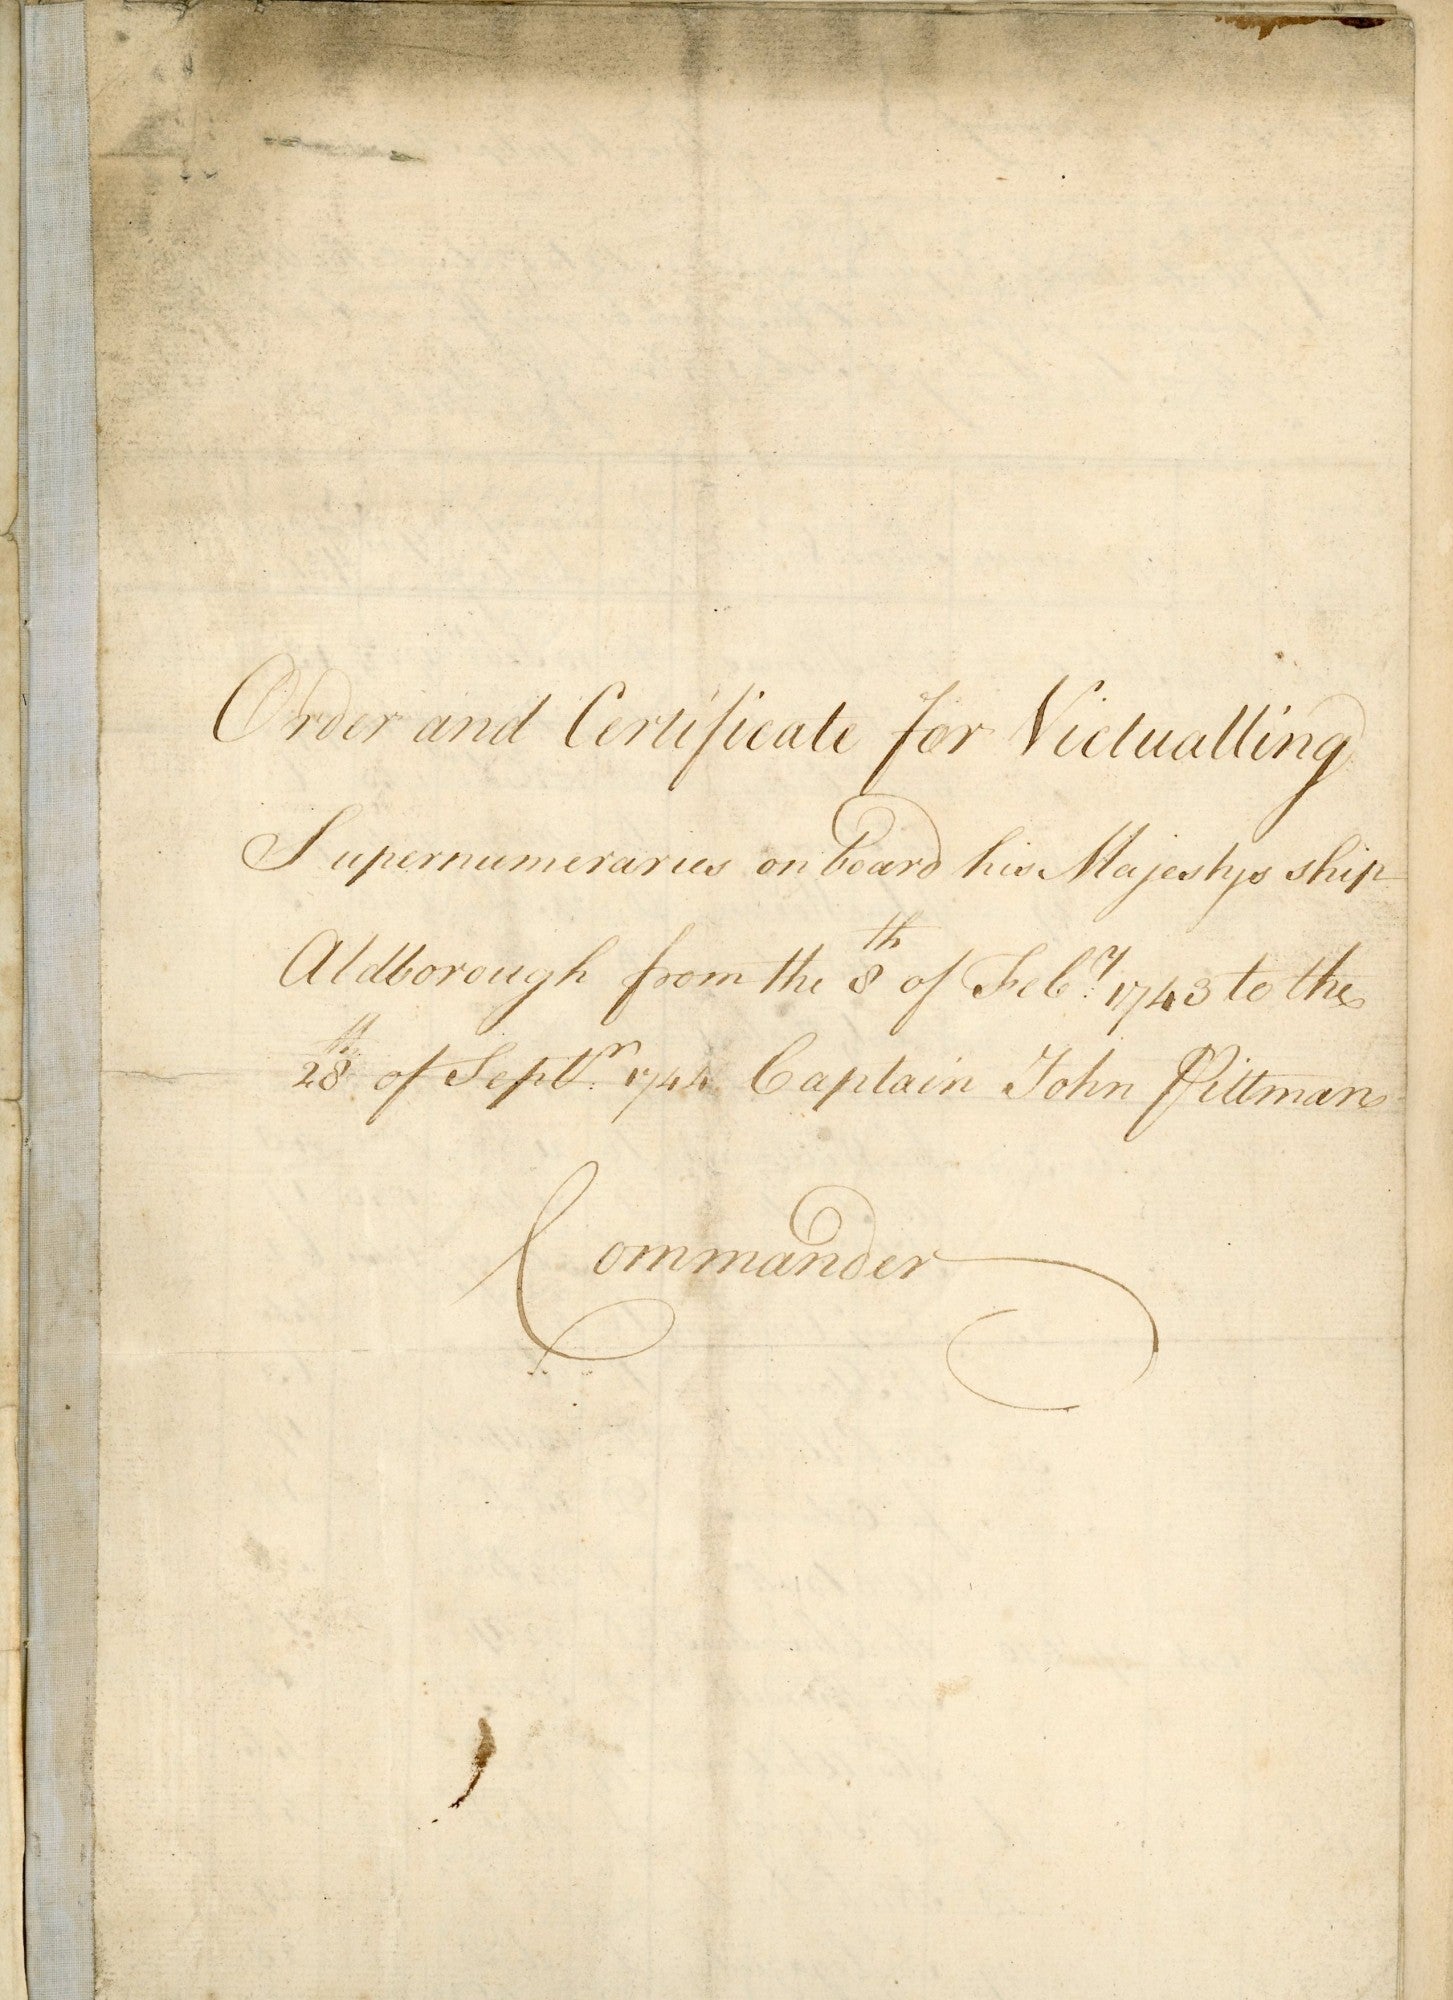 Order and Certificate for Victualling
Supernumeraries on board his Majestys ship
Aldborough from the 8th of Feb.y 1743 to the
28th of Septr. 1744 Captain John Pittman
Commander